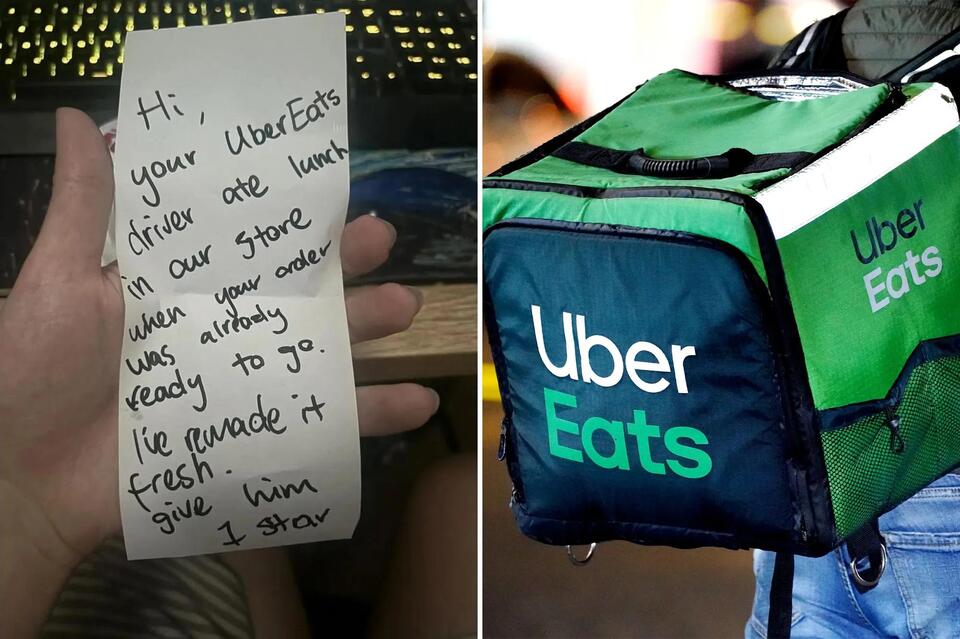 Hi,
your UberEats
driver ate lunch
in our store
when your order
was already
ready to go.
I've remade it
fresh.
give him
1 star
Uber
Eats
Uber
Eats